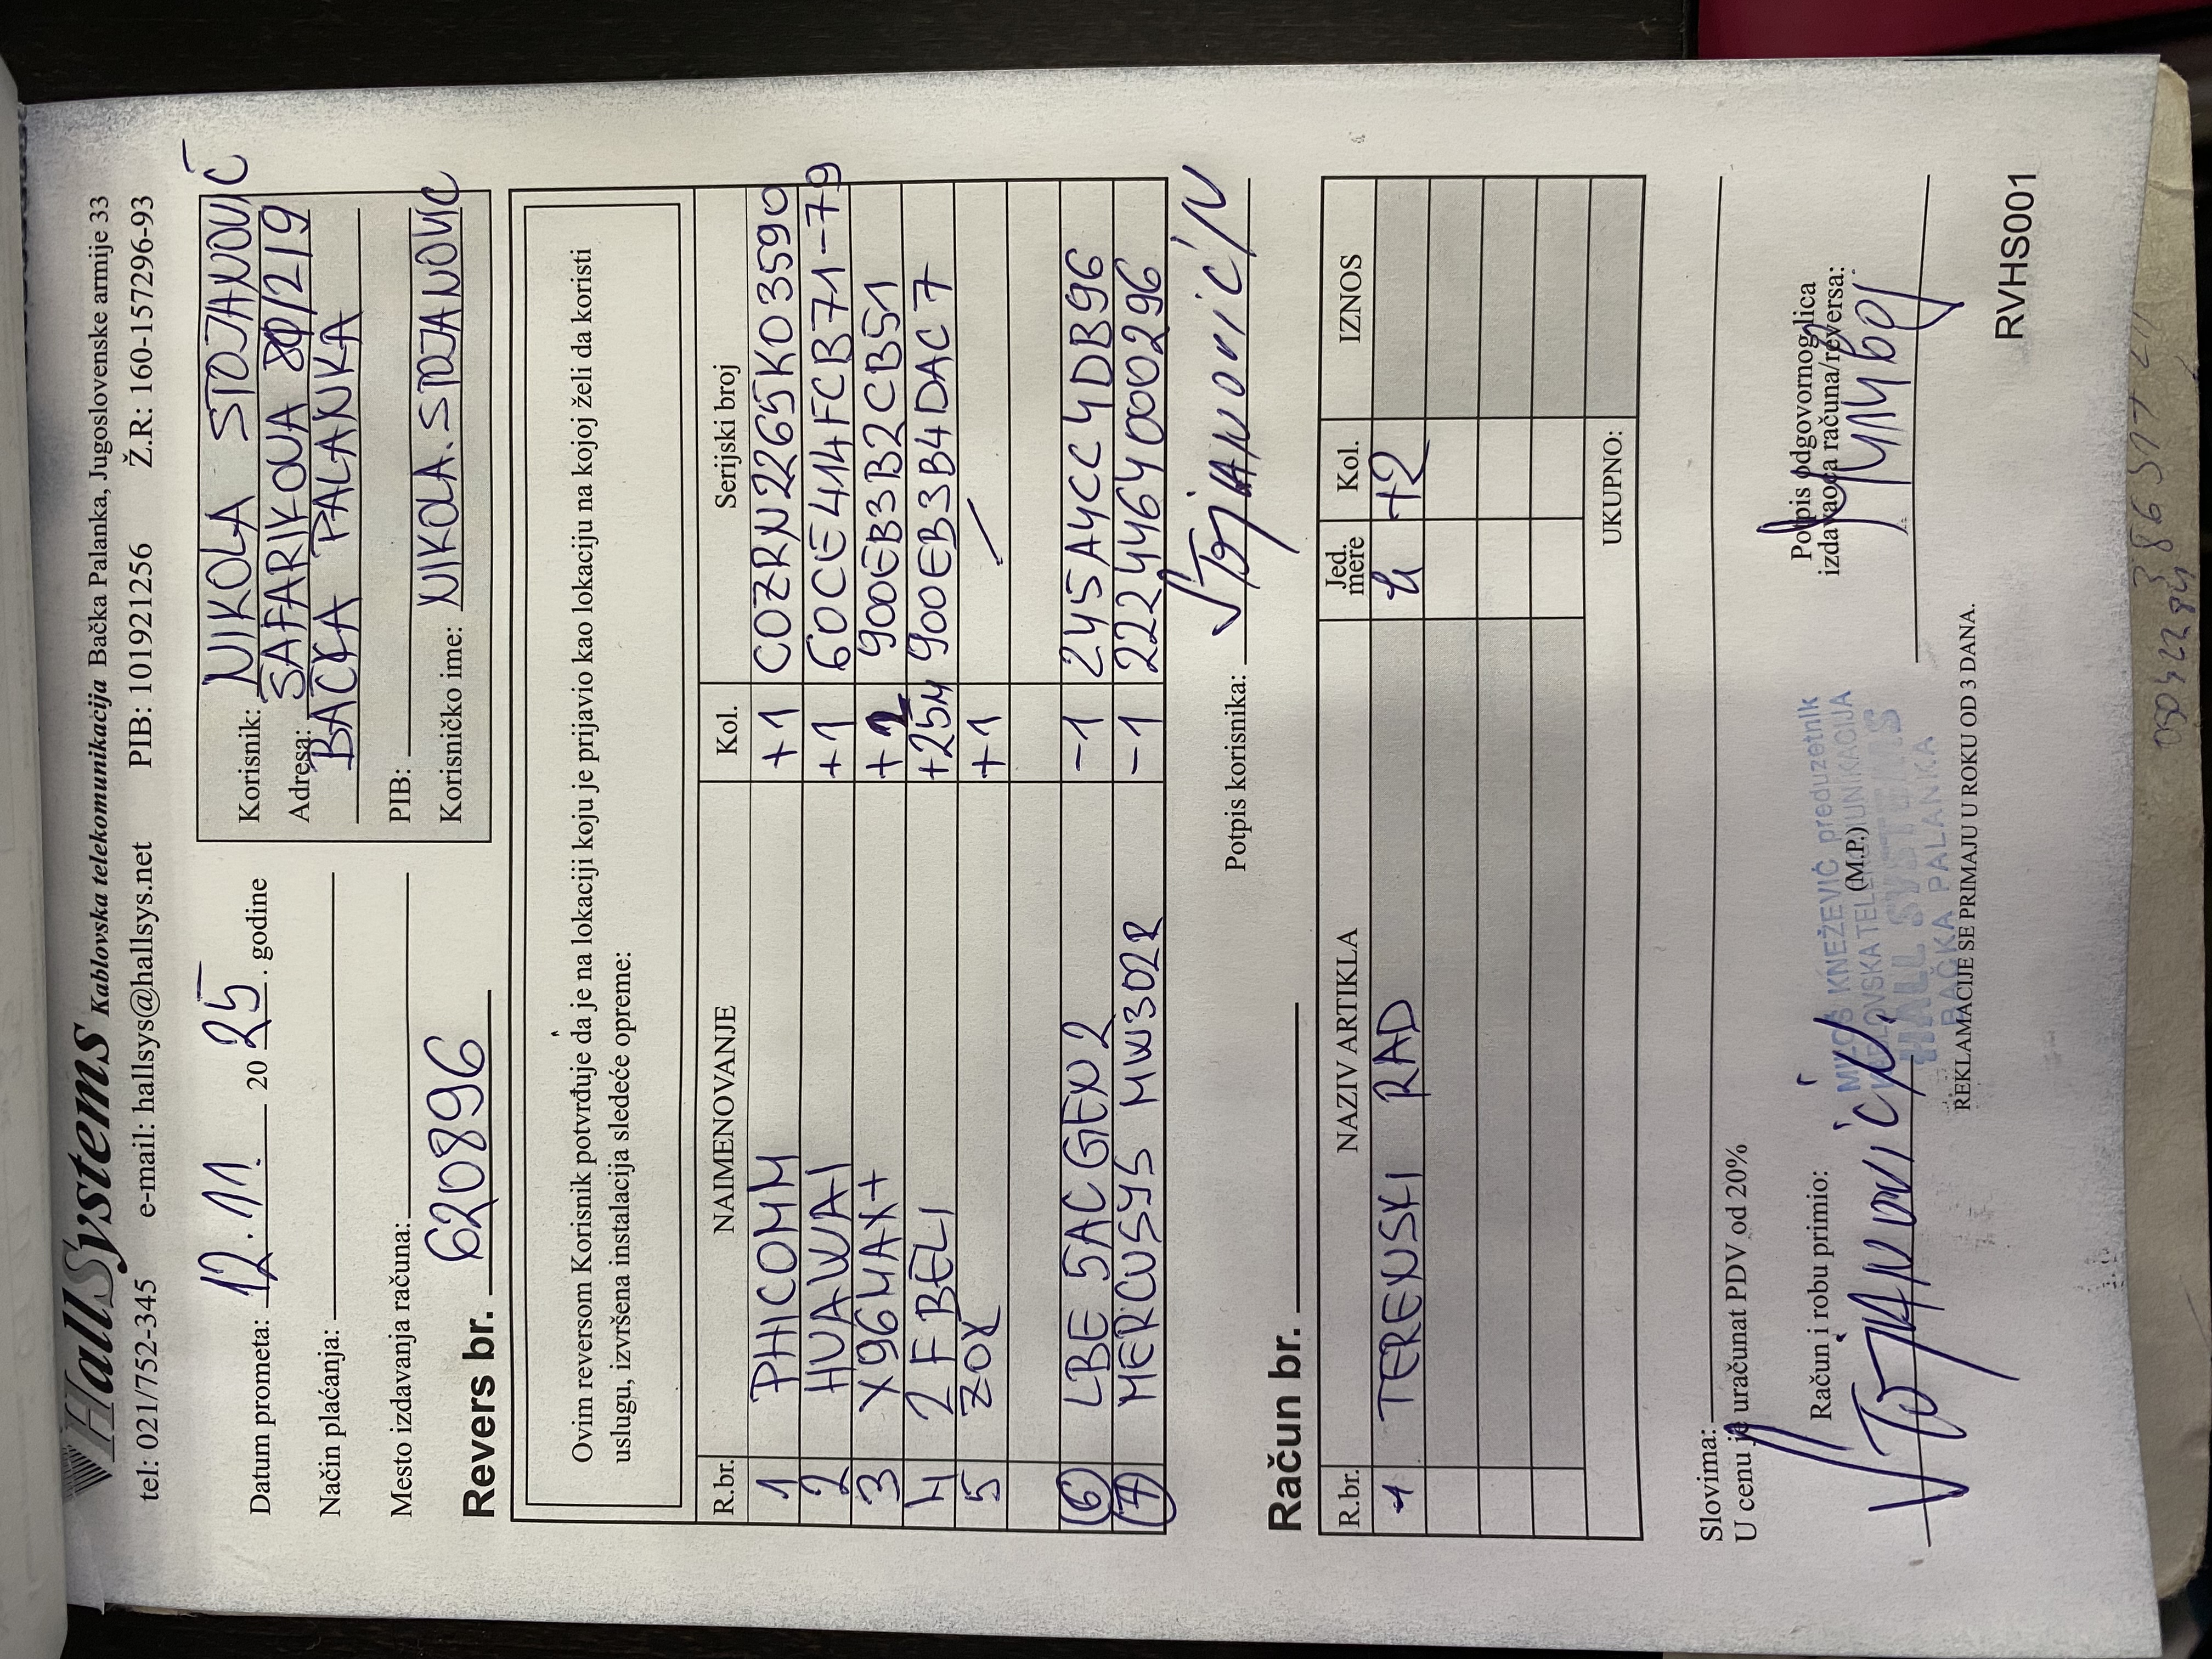 HallSystems Kablovska telekomunikacija Bačka Palanka, Jugoslovenske armije 33
tel: 021/752-345 e-mail: hallsys@hallsys.net PIB: 101921256 Ž.R: 160-157296-93
Datum prometa: 12.11. 20 25. godine
Način plaćanja:
Mesto izdavanja računa:
Korisnik: NIKOLA STOJANOVIĆ
Adresa: ŠAFARIKOVA /219
BAČKA PALANKA
PIB:
Korisničko ime: NIKOLA.STOJANOVIC
Revers br. 620896
Ovim reversom Korisnik potvrđuje da je na lokaciji koju je prijavio kao lokaciju na kojoj želi da koristi
uslugu, izvršena instalacija sledeće opreme:
R.br. NAIMENOVANJE Kol. Serijski broj
1 PHICOMM +1 COZRN2265K03590
2 HUAWAI +1 60CE414FCB71-79
3 X96MAX+ +2 900EB3B2CB51
4 2F BELI +25M 900EB3B4DAC7
5 ZOX +1 /
6 LBE 5AC GEN2 -1 245A4CC4DB96
7 MERCUSYS MW302R -1 2224464000296
Potpis korisnika: Stojanović N
Račun br.
R.br. NAZIV ARTIKLA Jed. mere Kol. IZNOS
1 TERENSKI RAD h +2
UKUPNO:
Slovima:
U cenu je uračunat PDV od 20%
Račun i robu primio:
Stojanović N.
(M.P.)
MILOŠ KNEŽEVIĆ preduzetnik
KABLOVSKA TELEKOMUNIKACIJA
HALL SYSTEMS
BAČKA PALANKA
Potpis odgovornog lica
izdavaoca računa/reversa:
REKLAMACIJE SE PRIMAJU U ROKU OD 3 DANA.
RVHS001